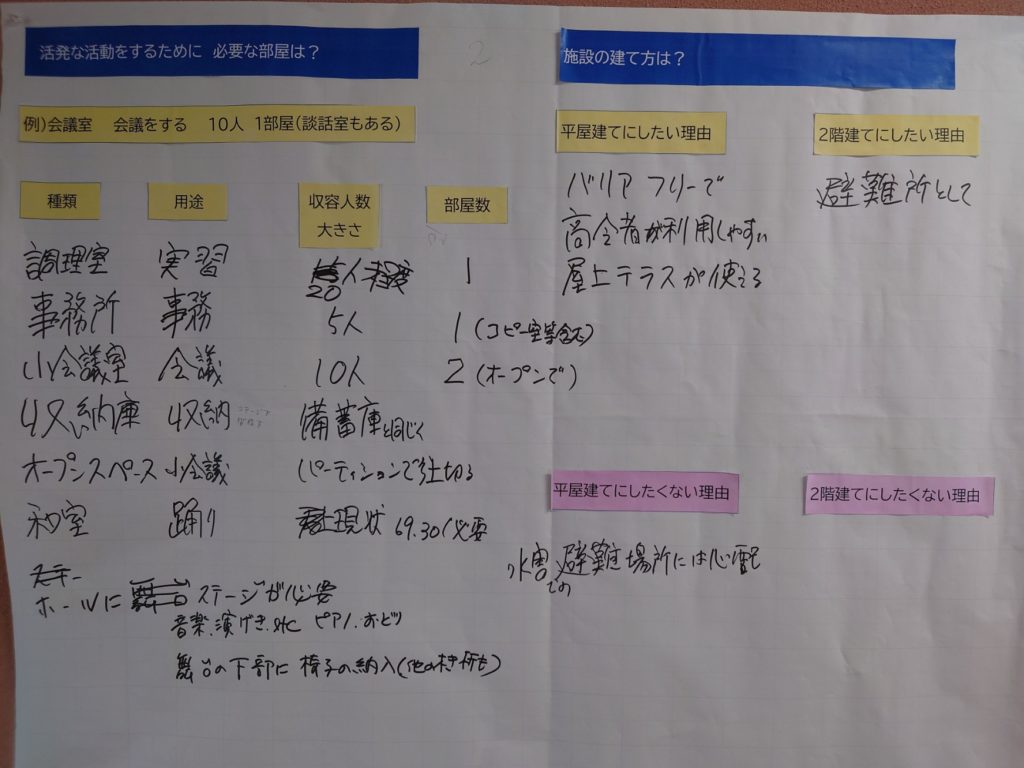 活発な活動をするために 必要な部屋は？
2
例)会議室 会議をする 10人 1部屋(談話室もある)
種類 用途 収容人数 大きさ 部屋数
調理室 実習 20人程度 1
事務所 事務 5人 1(コピー室等含む)
小会議室 会議 10人 2(オープンで)
収納庫 収納 備蓄庫と同じく
オープンスペース 小会議 パーティションで仕切る
和室 踊り 現状 69.30 必要
ホールに ステージが必要
音楽、演げき、外に ピアノ、おどり
舞台の下部に 椅子の納入(他の場所も)
施設の建て方は？
平屋建てにしたい理由
バリアフリーで
高令者が利用しやすい
屋上テラスが使える
2階建てにしたい理由
避難所として
平屋建てにしたくない理由
水害での避難場所には心配
2階建てにしたくない理由